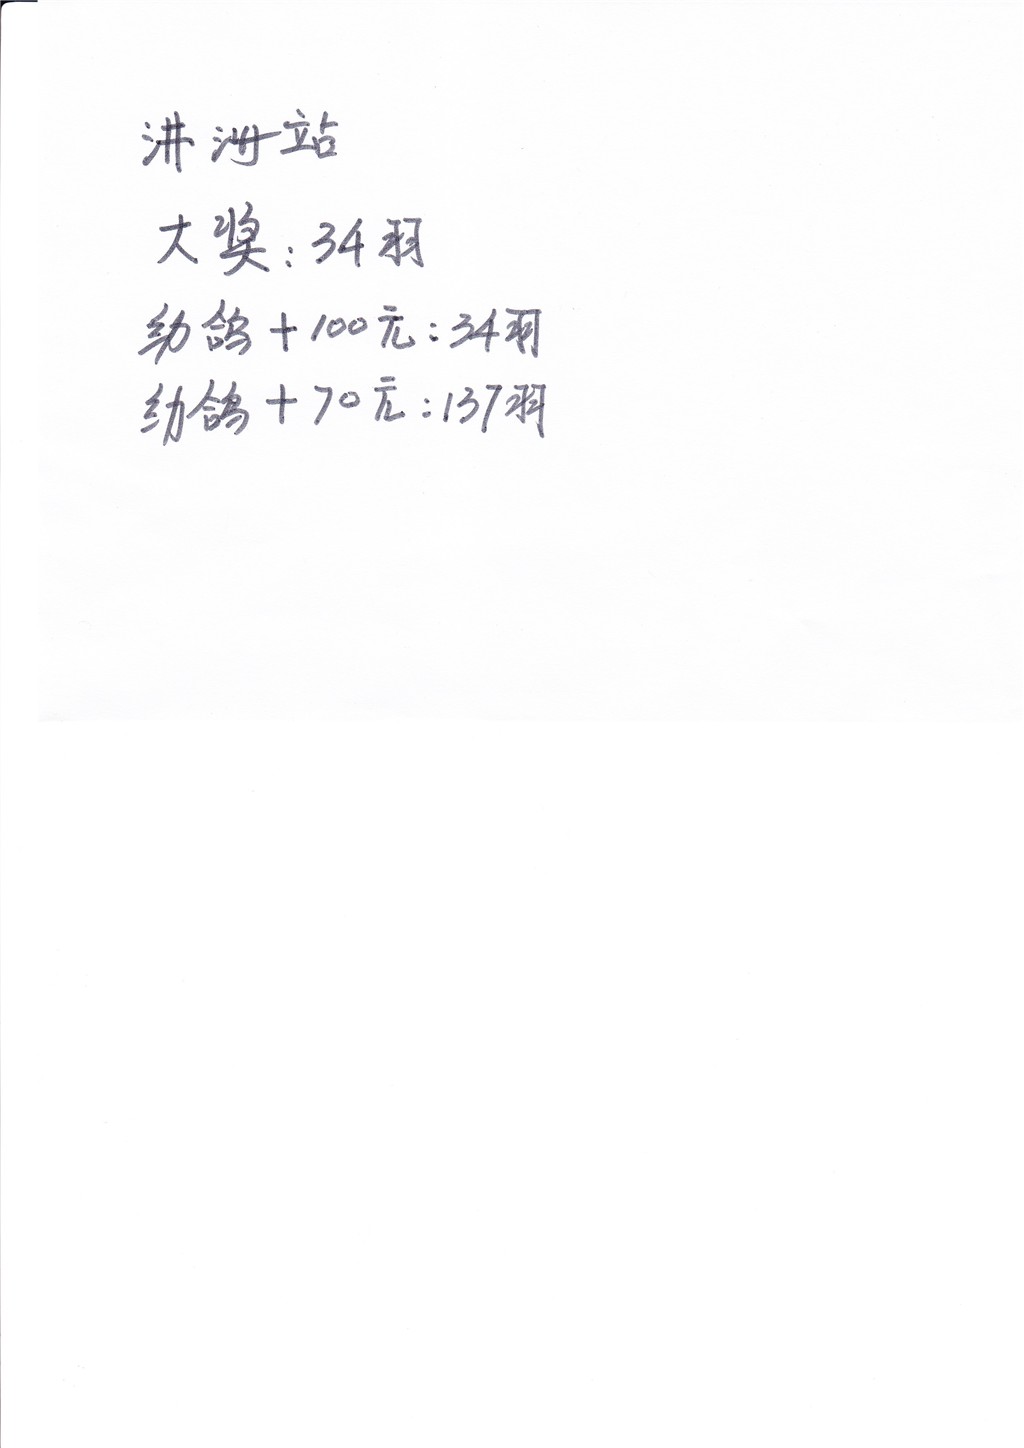 站
大奖:34羽
幼鸽+100元:34羽
幼鸽+70元:137羽